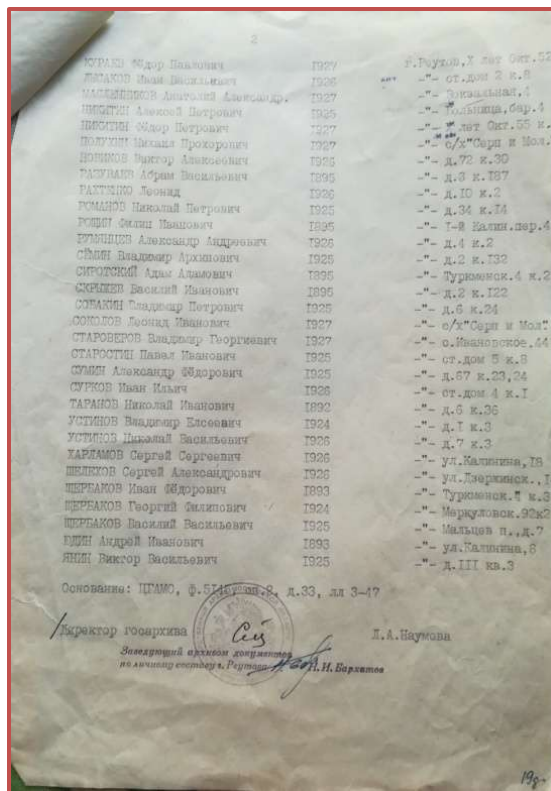 2
КУРАЕВ Фёдор Павлович 1927 г.Реутов,X лет Окт.52
ЛЫСАКОВ Иван Васильевич 1926 -"- ст.дом 2 к.8
МАСЛЕННИКОВ Анатолий Александр. 1927 -"- Вокзальная,4
НИКИТИН Алексей Петрович 1925 -"- Больница,бар.4
НИКИТИН Фёдор Петрович 1927 -"- лет Окт.55 к.
ПОЛУХИН Михаил Прохорович 1927 -"- с/х"Серп и Мол.
НОВИКОВ Виктор Алексеевич 1926 -"- д.72 к.30
Абрам Васильевич 1895 -"- д.3 к.187
РАХТЕНКО Леонид 1926 -"- д.10 к.2
РОМАНОВ Николай Петрович 1925 -"- д.34 к.14
РОЩИН Филип Иванович 1895 -"- I-й Калин.пер.4
РУМЯНЦЕВ Александр Андреевич 1926 -"- д.4 к.2
СЁМИН Владимир Архипович 1925 -"- д.2 к.132
СИРОТСКИЙ Адам Адамович 1895 -"- Туркменск.4 к.2
СКРЫЛЕВ Василий Иванович 1895 -"- д.2 к.122
СОБАКИН Владимир Петрович 1925 -"- д.6 к.24
СОКОЛОВ Леонид Иванович 1927 -"- с/х"Серп и Мол"
СТАРОВЕРОВ Владимир Георгиевич 1927 -"- с.Ивановское,44
СТАРОСТИН Павел Иванович 1925 -"- ст.дом 5 к.8
СУМИН Александр Фёдорович 1925 -"- д.67 к.23,24
СУРКОВ Иван Ильич 1926 -"- ст.дом 4 к.I
ТАРАНОВ Николай Иванович 1892 -"- д.6 к.36
УСТИНОВ Владимир Елсеевич 1924 -"- д.I к.3
УСТИНОВ Николай Васильевич 1926 -"- д.7 к.3
ХАРЛАМОВ Сергей Сергеевич 1926 -"- ул.Калинина,18
ШЕЛЕХОВ Сергей Александрович 1926 -"- ул.Дзержинск.,I
ЩЕРБАКОВ Иван Фёдорович 1893 -"- Туркменск. к.3
ЩЕРБАКОВ Георгий Филипович 1924 -"- Меркуловск.92к2
ЩЕРБАКОВ Василий Васильевич 1925 -"- Мальцев п.,д.7
ЮДИН Андрей Иванович 1893 -"- ул.Калинина,8
ЯНИН Виктор Васильевич 1925 -"- д.III кв.3
Основание: ЦГАМО, оп.2, д.33, лл 3-47
Директор госархива Л.А.Наумова
Заведующий архивом документов
по личному составу г. Реутова Н.И. Бархатов